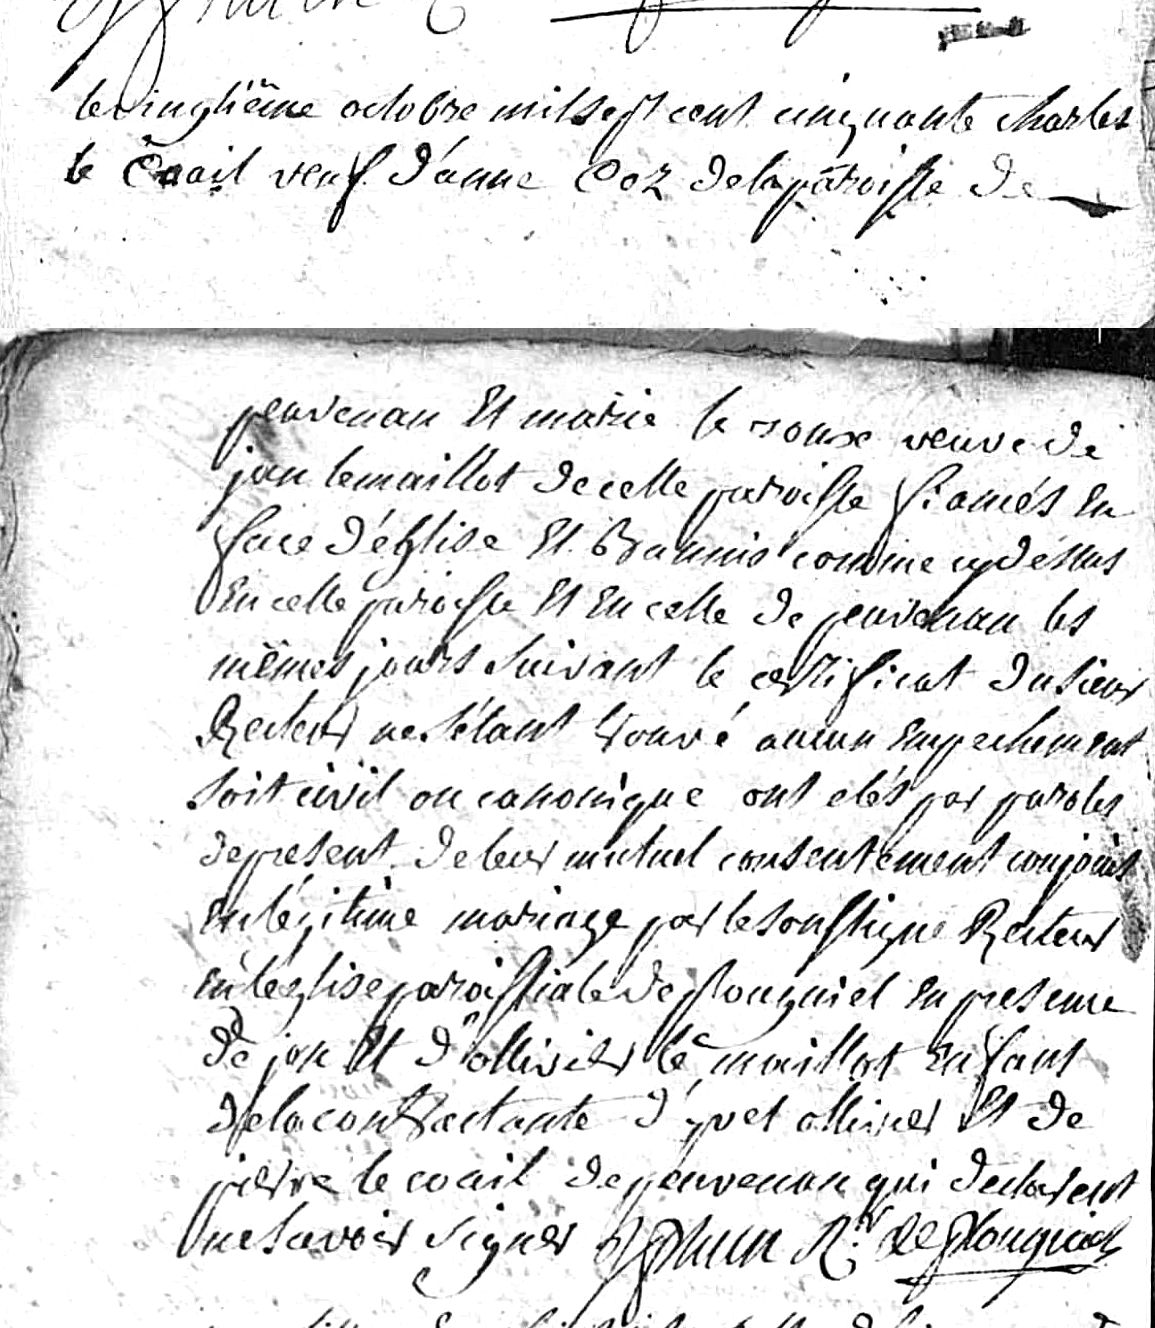 le vingtième octobre mil sept cent cinquante charles
le Coail veuf d'anne Coz de la paroisse de
penvenan Et marie le roux veuve de
jan lemaillot de celle paroisse fiancés En
face d'église Et Bannis comme cy dessus
En celle paroisse Et En celle de penvenan les
mêmes jours suivant le certificat du sieur
Recteur ne s'étant trouvé aucun Empechement
soit civil ou canonique ont etés par paroles
de present de leur mutuel consentement conjoint
En légitime mariage par le soussigne Recteur
En l'église paroissiale de plouguiel En presence
De jan Et d'ollivier le maillot Enfant
de la contractante d'yvet ollivier Et de
pierre le coail de penvenan qui declarent
ne savoir signer R.r de plouguiel